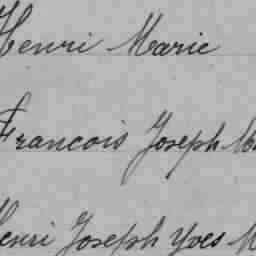 Henri Marie
Francois Joseph
Henri Joseph Yves